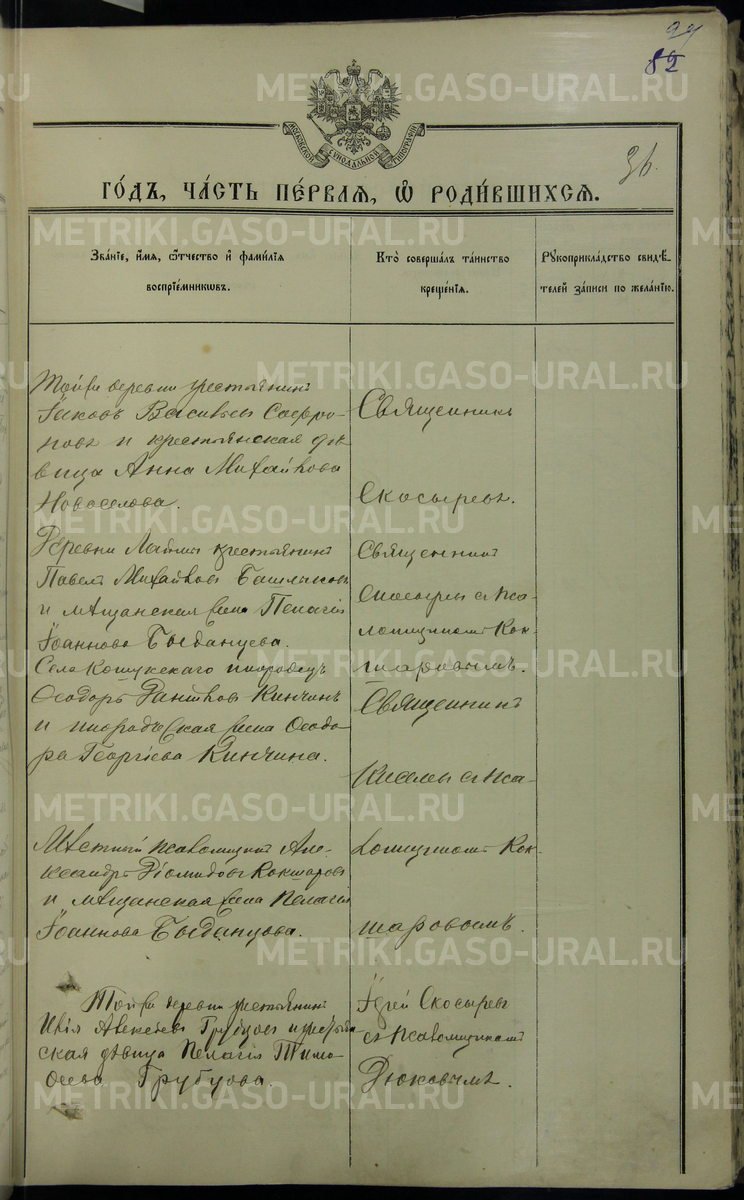 94
82
METRIKI.GASO-URAL.RU
МОСКОВСКОЙ СѴНОДАЛЬНОЙ ТИПОГРАФІИ
36.
ГОДЪ, ЧАСТЬ ПЕРВАЯ, Ѡ РОДИВШИХСЯ.
Званіе, имя, отчество и фамилія
воспріемниковъ.
Кто совершалъ таинство
крещенія.
Рукоприкладство свидѣ-
телей записи по желанію.
Той же деревни крестьянинъ
Іаковъ Васильевъ Сафро-
новъ и крестьянская дѣ-
вица Анна Михайлова
Новоселова.
Священникъ
Скосыревъ.
Деревни крестьянинъ
Павелъ Михайловъ
и мѣщанская жена Пелагія
Іоаннова Богданцева.
Священникъ
Скосыревъ съ пса-
ломщикомъ Кок-
шаровымъ.
Села Кошукскаго инородецъ
Ѳеодоръ Кинчинъ
и инородческая жена Ѳеодо-
ра Георгіева Кинчина.
Священникъ
Киселевъ съ пса-
ломщикомъ Кок-
шаровымъ.
Мѣстный псаломщикъ Але-
ксандръ Діомидовъ Кокшаровъ
и мѣщанская жена Пелагія
Іоаннова Богданцова.
Той же деревни крестьянинъ
Илія Алексѣевъ Трубцовъ и крестьян-
ская дѣвица Пелагія Тимо-
ѳеева Трубцова.
Іерей Скосыревъ
съ псаломщикомъ
Дюковымъ.